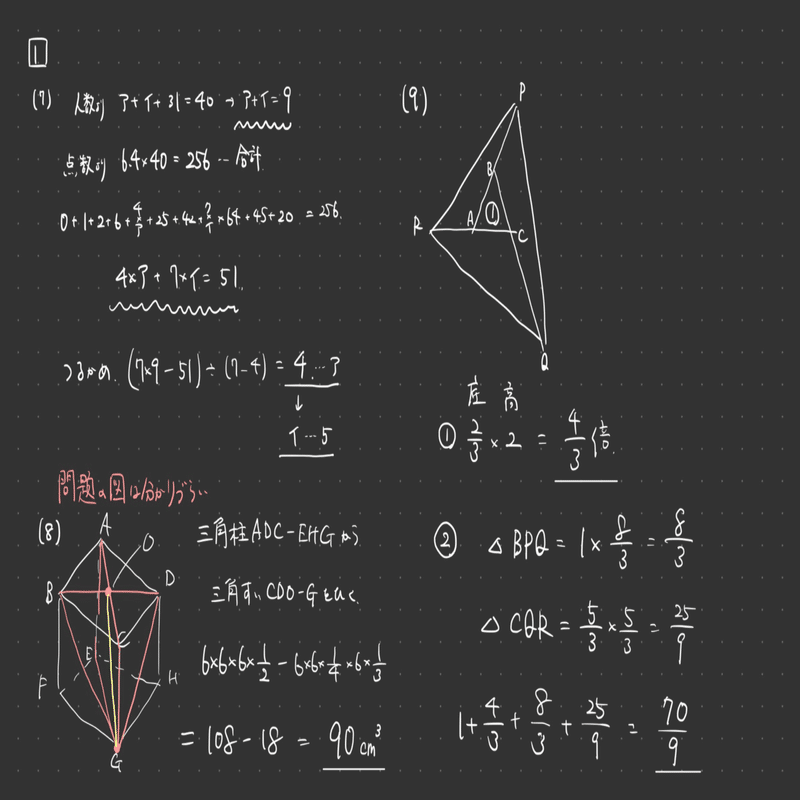 1
(7) 人数より ア+イ+31=40 → ア+イ=9
点数より 6.4×40=256 … 合計
0+1+2+6+4×ア+25+42+7×イ+64+45+20 = 256
4×ア+7×イ=51
つるかめ (7×9-51)÷(7-4)=4…ア
↓
イ…5
問題の図は分かりづらい
(8)
A
O
B
D
C
E
F
H
G
三角柱ADC-EHGから
三角すいCDO-Gをひく
6×6×6×1/2 - 6×6×1/4×6×1/3
= 108-18 = 90cm³
(9)
P
B
R
A
①
C
Q
底 高
① 2/3×2 = 4/3倍
② △BPQ = 1×8/3 = 8/3
△CQR = 5/3×5/3 = 25/9
1+4/3+8/3+25/9 = 70/9